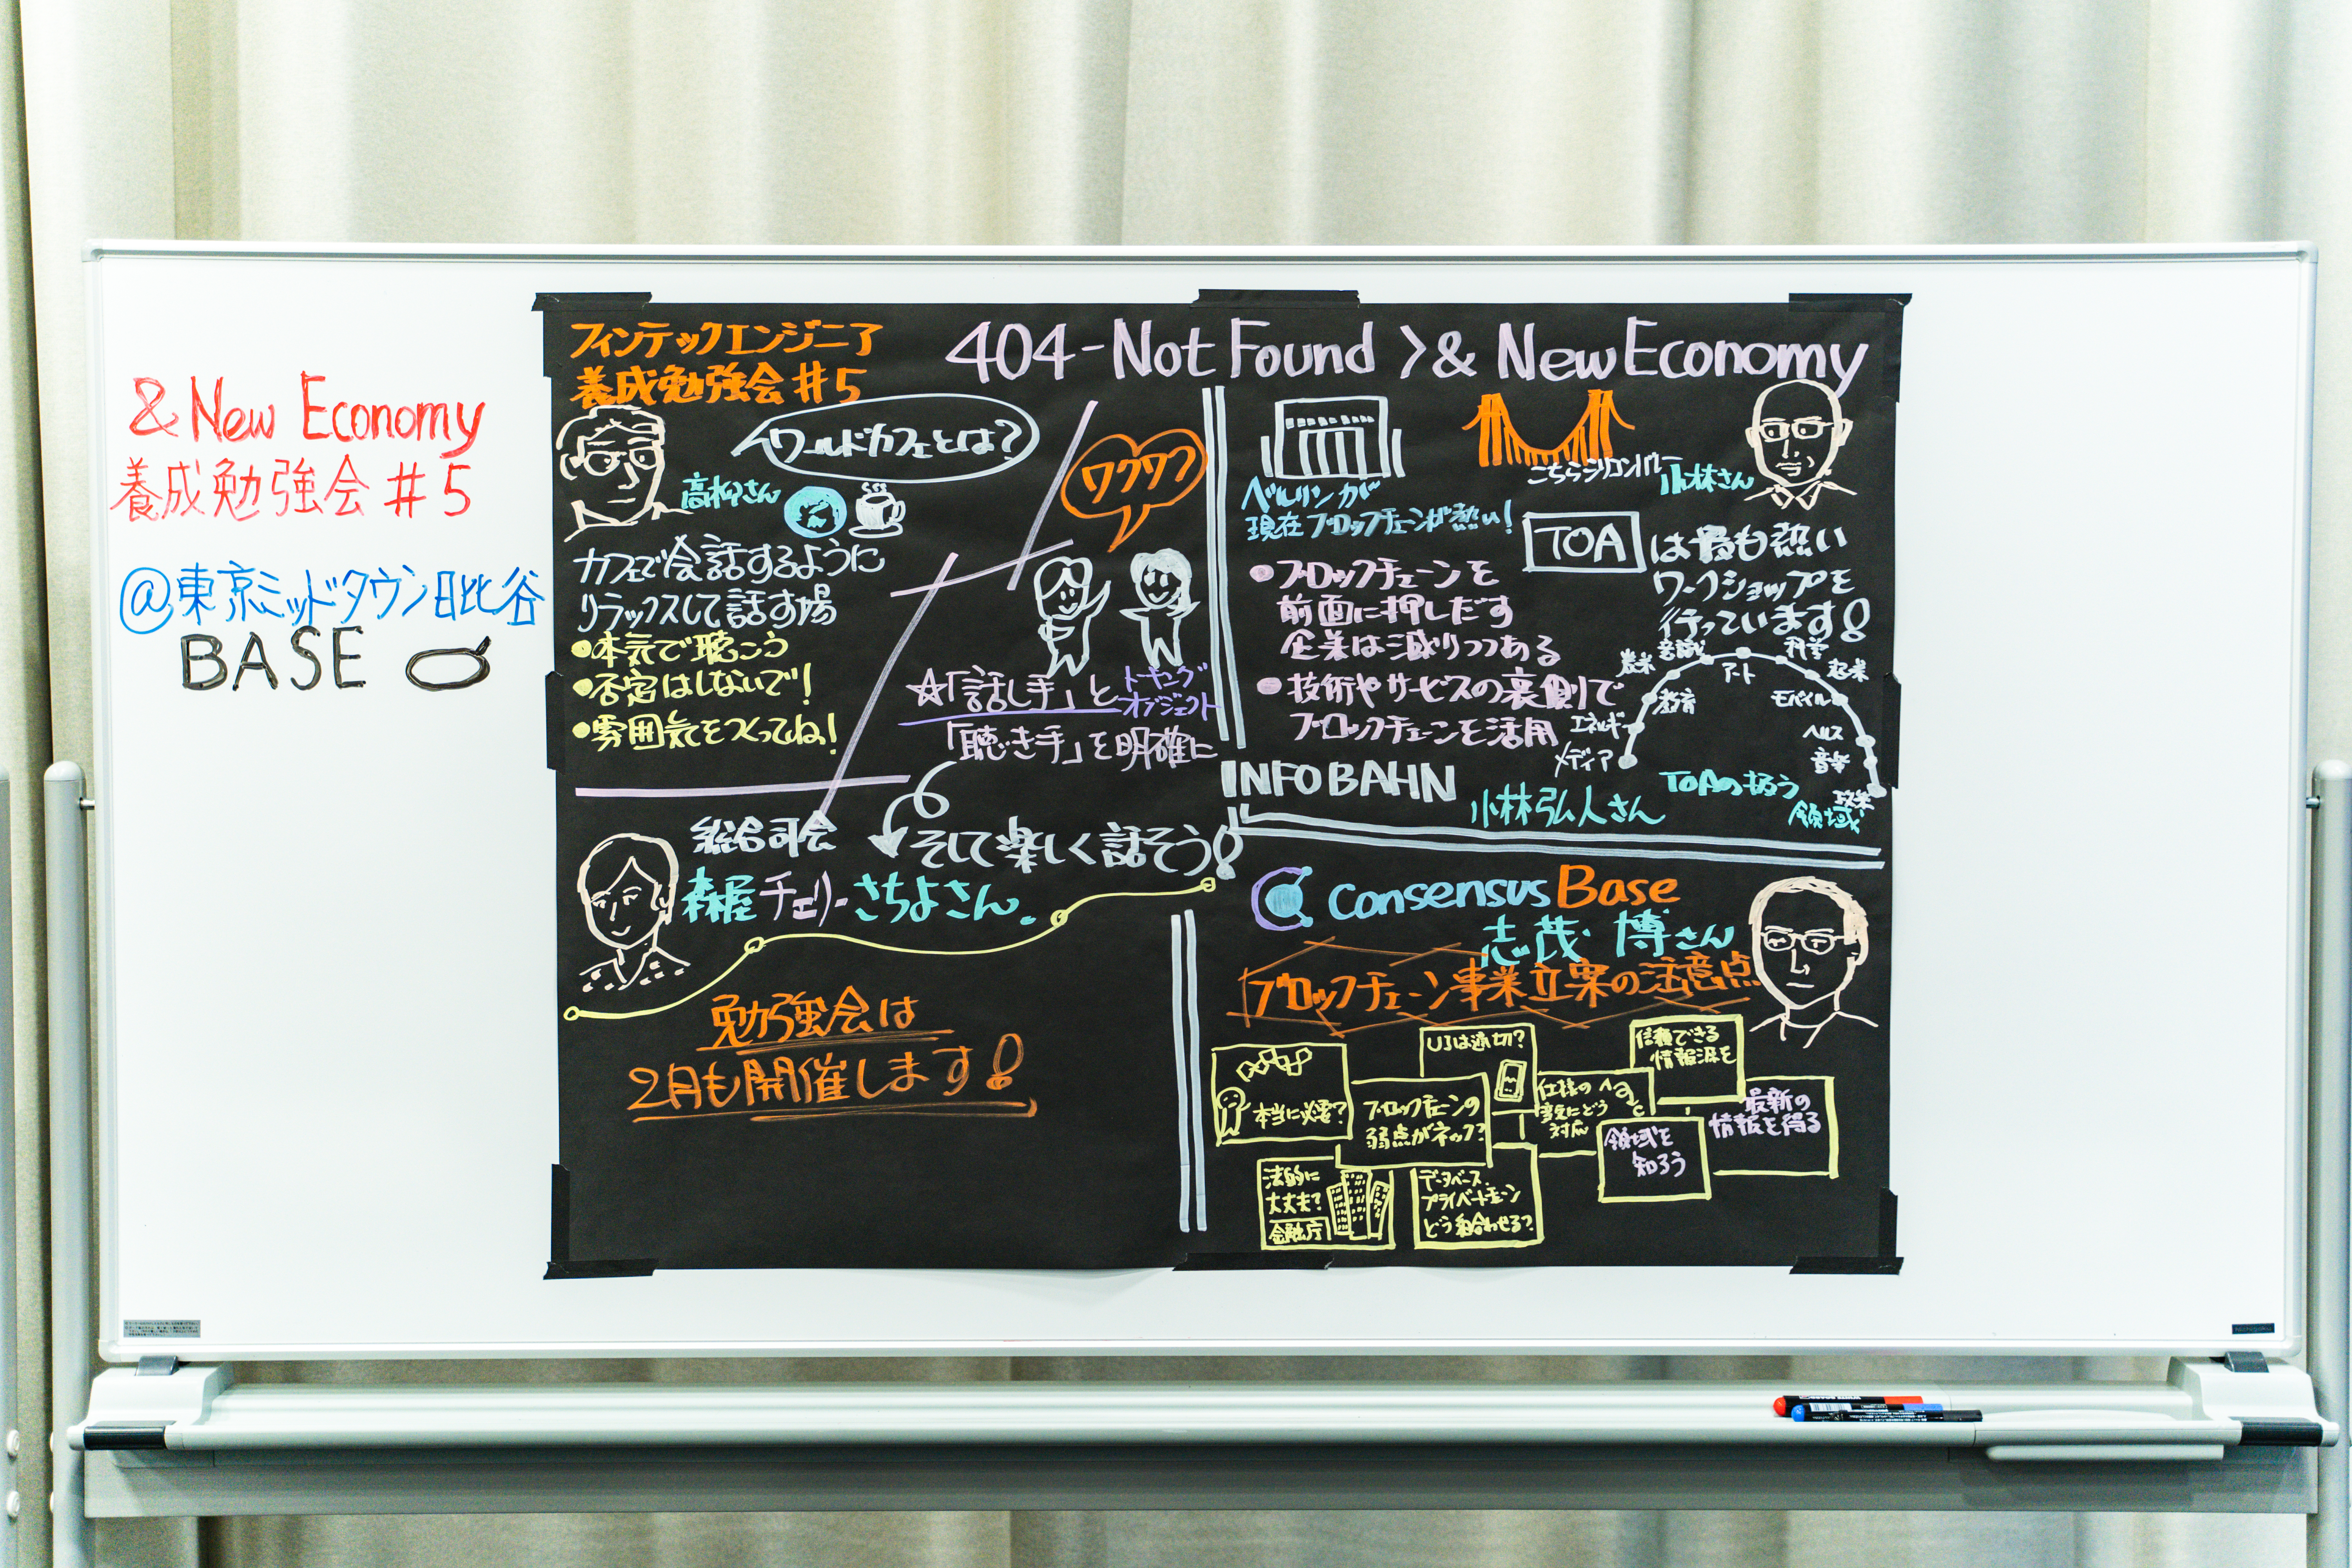 &New Economy
養成勉強会#5
@東京ミッドタウン日比谷
BASE
フィンテックエンジニア
養成勉強会#5
404-Not Found >& New Economy
ワールドカフェとは?
高松さん
カフェで会話するように
リラックスして話す場
●本気で聴こう
●否定はしないで!
●雰囲気をつくってね!
ワクワク
☆「話し手」と
トーキング
オブジェクト
「聴き手」を明確に
そして楽しく話そう!
総合司会
森屋チェリーさちよさん。
勉強会は
2月も開催します!
ベルリンが
現在ブロックチェーンが熱い!
こちらシリコンバレー
小林さん
●ブロックチェーンを
前面に押しだす
企業は減りつつある
●技術やサービスの裏側で
ブロックチェーンを活用
TOAは最も熱い
ワークショップを
行っています!
メディア
エネルギー
教育
アート
科学
モバイル
ヘルス
音楽
TOAの扱う
領域
INFOBAHN
小林弘人さん
Consensus Base
志茂 博さん
ブロックチェーン事業立案の注意点
本当に必要?
UIは適切?
ブロックチェーンの
弱点がネック?
仕様の
変更にどう
対応
信頼できる
情報源を
最新の
情報を得る
領域を
知ろう
法的に
大丈夫?
金融庁
データベース
プライベートチェーン
どう組合わせる?